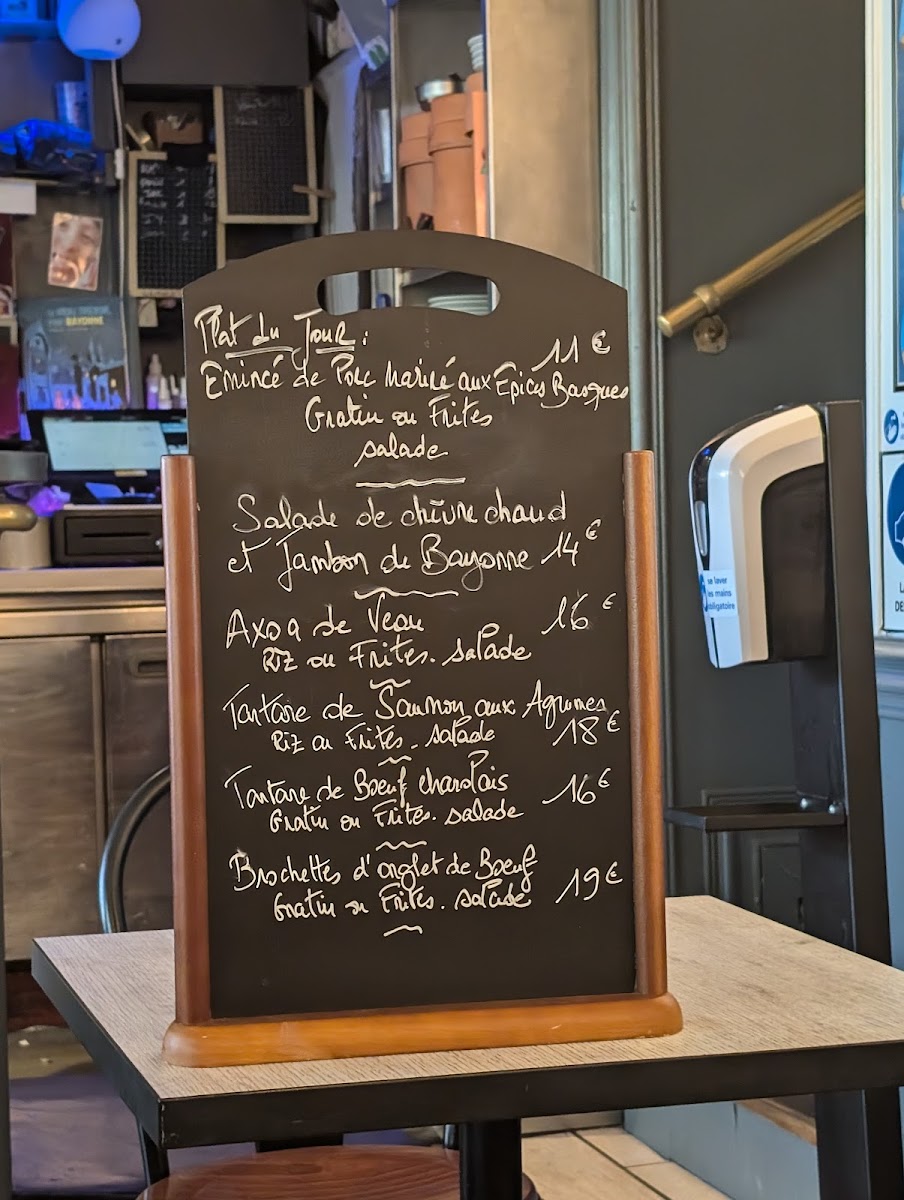 Plat du Jour :
11 €
Emincé de Porc Mariné aux Epices Basques
Gratin ou Frites
salade
Salade de chèvre chaud
et Jambon de Bayonne 14 €
Axoa de Veau 16 €
Riz ou Frites. salade
Tartare de Saumon aux Agrumes
Riz ou Frites. salade 18 €
Tartare de Boeuf charolais 16 €
Gratin ou Frites. salade
Brochettes d'onglet de Boeuf
Gratin ou Frites. salade 19 €
BAYONNE
se laver
les mains
obligatoire